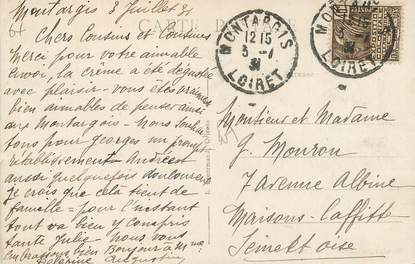 Montargis 3 Juillet 31
Chers Cousins et Cousines
Merci pour votre aimable
envoi, la crème a été dégustée
avec plaisir - vous êtes vraiment
bien aimables de penser ainsi
aux Montargois - Nous souhai
tons pour Georges un prompt
rétablissement
aussi quelquefois douloureux
Je crois que cela tient de
famille - pour l'instant
tout va bien y compris
tante Julie - Nous vous
embrassons bien Bonjour à
CARTE POSTALE
MONTARGIS
12 15
3 - 7
31
LOIRET
MONTARGIS
LOIRET
Monsieur et Madame
G. Mouron
7 Avenue Albine
Maisons-Laffitte
Seine et Oise